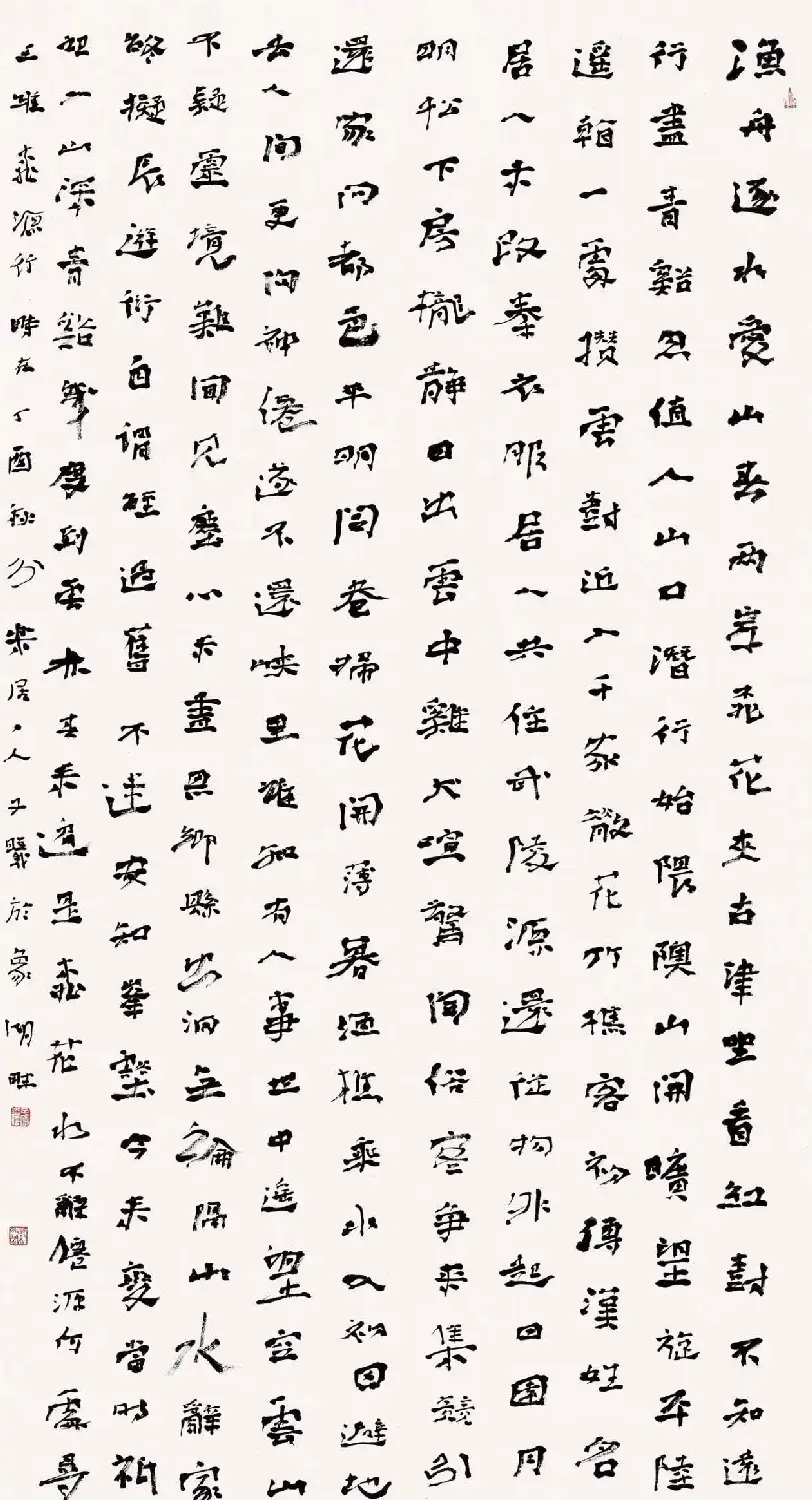 漁舟逐水愛山春兩岸桃花夾古津坐看紅尌不知遠
行盡青谿忽值人山口潛行始隈隩山開曠望旋平陸
遙看一處攢雲尌近入千家散花竹樵客初傳漢姓名
居人未改秦衣服居人共住武陵源還從物外起田園月
明松下房櫳靜日出雲中雞犬喧驚聞俗客爭來集競引
還家問都邑平明閭巷掃花開薄暮漁樵乘水入初因避地
去人間更問神僊遂不還峽里誰知有人事世中遙望空雲山
不疑靈境難聞見塵心未盡思鄉縣出洞無論隔山水辭家
終擬長遊衍自謂經過舊不迷安知峯壑今來變當時祇
記入山深青谿幾度到雲林春來遍是桃花水不辨僊源何處尋
王維桃源行時在丁酉秋分居人又驥於象湖畔